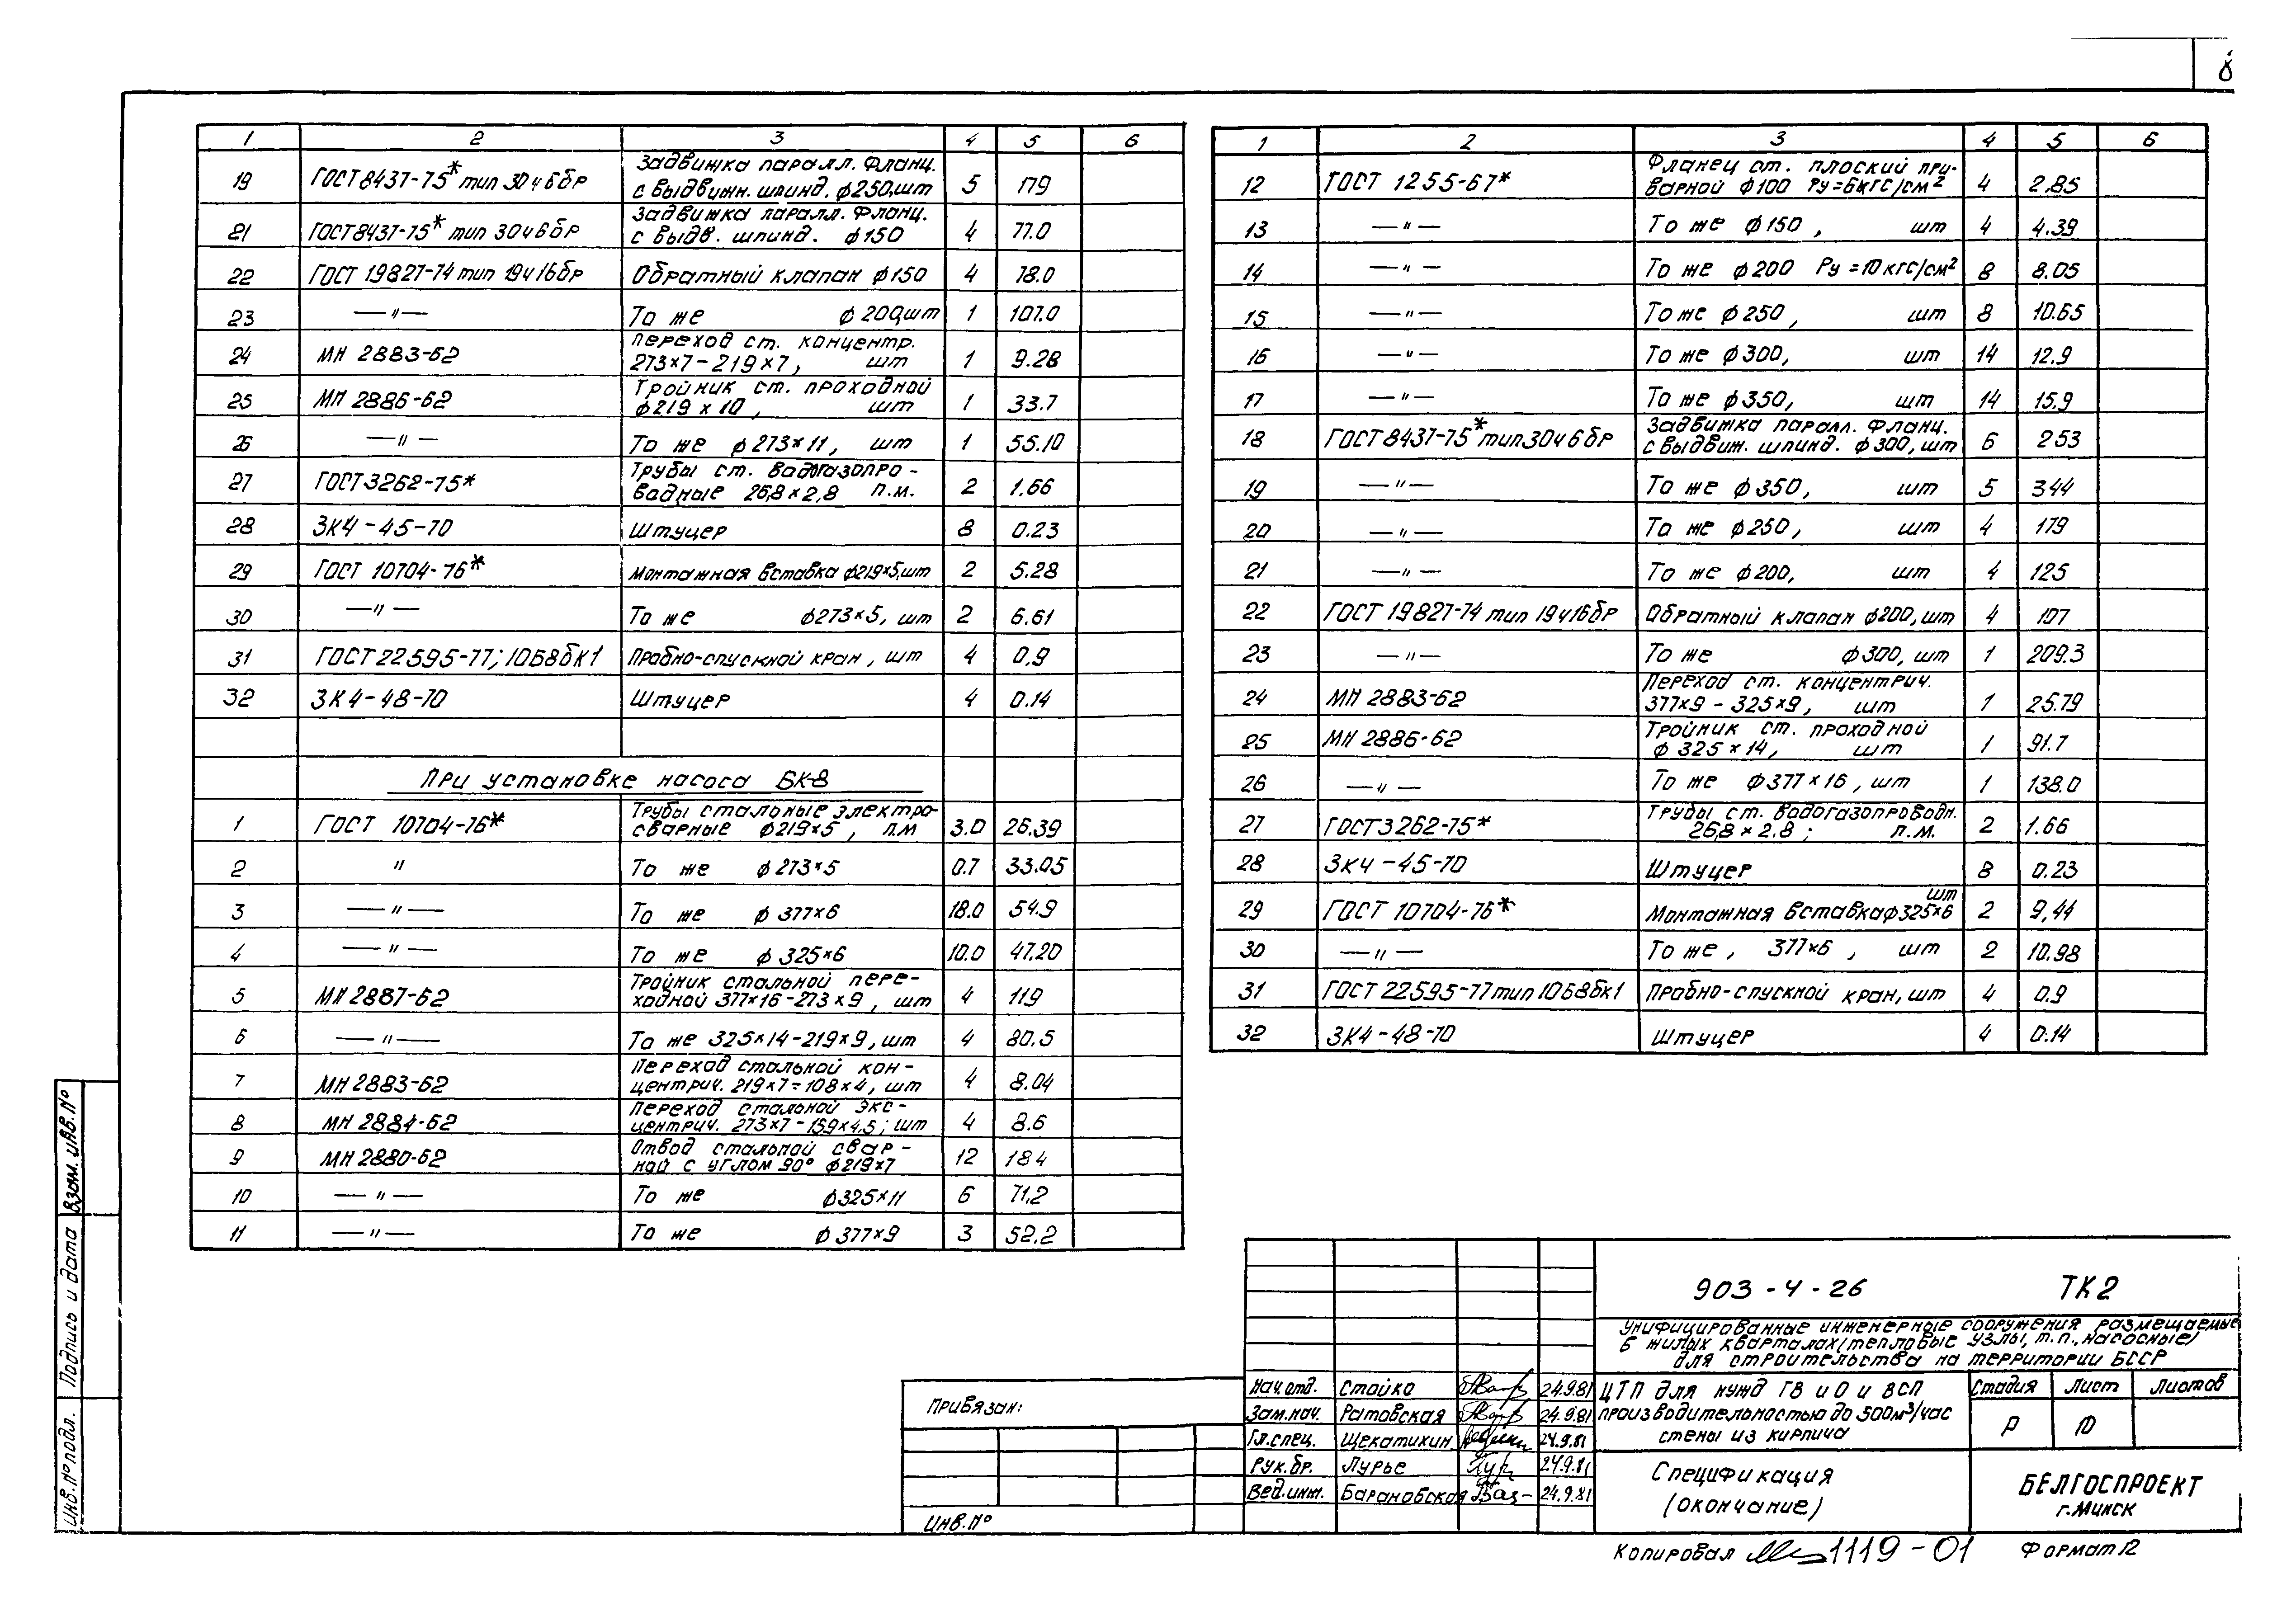 8
1 2 3 4 5 6
19 ГОСТ 8437-75* тип 30ч6бр Задвижка паралл. фланц.
с выдвижн. шпинд. ф250, шт 5 179
21 ГОСТ 8437-75* тип 30ч6бр Задвижка паралл. фланц.
с выдв. шпинд. ф150 4 77.0
22 ГОСТ 19827-74 тип 19ч16бр Обратный клапан ф150 4 78.0
23 —"— То же ф200, шт 1 107.0
24 МН 2883-62 Переход ст. концентр.
273×7-219×7, шт 1 9.28
25 МН 2886-62 Тройник ст. проходной
ф219×10, шт 1 33.7
26 —"— То же ф273×11, шт 1 55.10
27 ГОСТ 3262-75* Трубы ст. водогазопро-
водные 26,8×2,8 п.м. 2 1.66
28 ЗК4-45-70 Штуцер 8 0.23
29 ГОСТ 10704-76* Монтажная вставка ф219×5, шт 2 5.28
30 —"— То же ф273×5, шт 2 6.61
31 ГОСТ 22595-77; 10Б8бк1 Пробно-спускной кран, шт 4 0.9
32 ЗК4-48-70 Штуцер 4 0.14
При установке насоса БК-8
1 ГОСТ 10704-76* Трубы стальные электро-
сварные ф219×5, п.м 3.0 26.39
2 " То же ф273×5 0.7 33.05
3 —"— То же ф377×6 18.0 54.9
4 —"— То же ф325×6 10.0 47.20
5 МН 2887-62 Тройник стальной пере-
ходной 377×16-273×9, шт 4 119
6 —"— То же 325×14-219×9, шт 4 80.5
7 МН 2883-62 Переход стальной кон-
центрич. 219×7-108×4, шт 4 8.04
8 МН 2884-62 Переход стальной экс-
центрич. 273×7-159×4,5; шт 4 8.6
9 МН 2880-62 Отвод стальной свар-
ной с углом 90° ф219×7 12 18.4
10 —"— То же ф325×11 6 71.2
11 —"— То же ф377×9 3 52.2
1 2 3 4 5 6
12 ГОСТ 1255-67* Фланец ст. плоский при-
варной ф100 Ру=6кгс/см² 4 2.85
13 —"— То же ф150, шт 4 4.39
14 —"— То же ф200 Ру=10кгс/см² 8 8.05
15 —"— То же ф250, шт 8 10.65
16 —"— То же ф300, шт 14 12.9
17 —"— То же ф350, шт 14 15.9
18 ГОСТ 8437-75* тип 30ч6бр Задвижка паралл. фланц.
с выдвиж. шпинд. ф300, шт 6 253
19 —"— То же ф350, шт 5 344
20 —"— То же ф250, шт 4 179
21 —"— То же ф200, шт 4 125
22 ГОСТ 19827-74 тип 19ч16бр Обратный клапан ф200, шт 4 107
23 —"— То же ф300, шт 1 209.3
24 МН 2883-62 Переход ст. концентрич.
377×9-325×9, шт 1 25.79
25 МН 2886-62 Тройник ст. проходной
ф325×14, шт 1 91.7
26 —"— То же ф377×16, шт 1 138.0
27 ГОСТ 3262-75* Трубы ст. водогазопроводн.
26,8×2.8; п.м. 2 1.66
28 ЗК4-45-70 Штуцер 8 0.23
шт
29 ГОСТ 10704-76* Монтажная вставка ф325×6 2 9,44
30 —"— То же, 377×6, шт 2 10.98
31 ГОСТ 22595-77 тип 10Б8бк1 Пробно-спускной кран, шт 4 0.9
32 ЗК4-48-70 Штуцер 4 0.14
Взам. инв. №
Подпись и дата
Инв. № подл.
Привязан:
Инв. №
903-4-26 ТК2
Унифицированные инженерные сооружения размещаемые
в жилых кварталах (тепловые узлы, т.п., насосные)
для строительства на территории БССР
Нач. отд. Стойко 24.9.81
Зам. нач. Ратовская 24.9.81
Гл. спец. Щекатихин 24.9.81
Рук. бр. Лурье 24.9.81
Вед. инж. Барановская 24.9.81
ЦТП для нужд ГВ и О и ВСП
производительностью до 500м³/час
стены из кирпича
Стадия Лист Листов
Р 10
Спецификация
(окончание)
БЕЛГОСПРОЕКТ
г. Минск
Копировал 1119-01 Формат 12